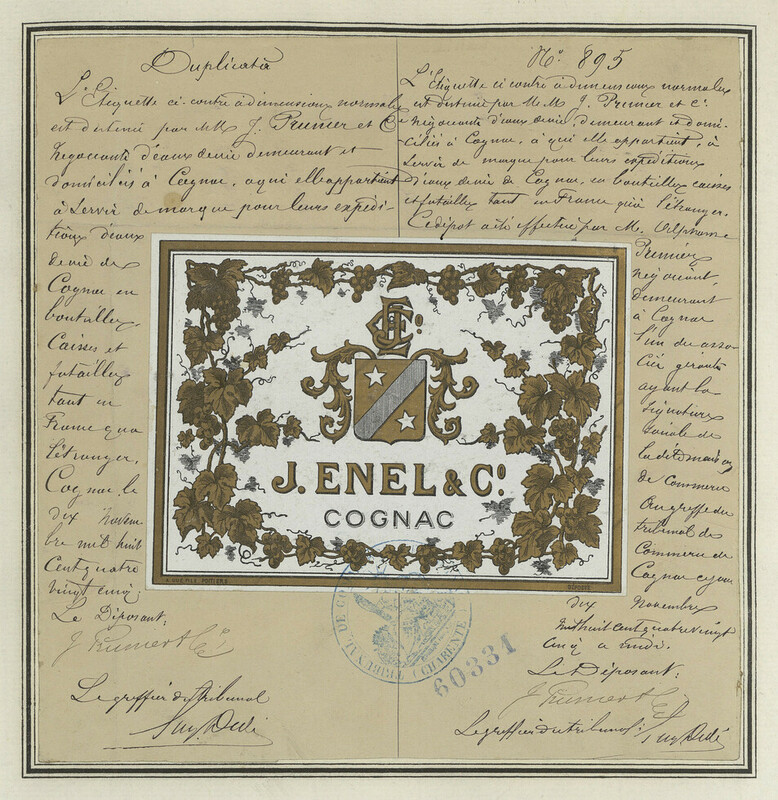 Duplicata
L'Etiquette ci-contre à dimensions normales
est destinée par MM J. Prunier et Cie
Négociants d'eaux de vie demeurant et
domiciliés à Cognac, à qui elle appartient
à servir de marque pour leurs expédi-
tions d'eaux
de vie de
Cognac en
bouteilles,
Caisses et
futailles
tant en
France qu'a
l'étranger.
Cognac le
dix Novem
bre mil huit
cent quatre
vingt cinq
Le Déposant:
J Prunier & Cie
Le greffier du tribunal
No. 895
L'Etiquette ci contre à dimensions normales
est destinée par MM. J. Prunier et Cie
négociants d'eaux de vie, demeurant et domi-
ciliés à Cognac, à qui elle appartient, à
servir de marque pour leurs expéditions
d'eaux de vie de Cognac, en bouteilles caisses
et futailles tant en France qu'à l'étranger.
Ce dépot a été effectué par M. Alphonse
Prunier
négociant,
demeurant
à Cognac
l'un des asso-
ciés gérants
ayant la
signature
sociale de
la dite maison
de Commerce
Au greffe du
tribunal de
Commerce de
Cognac ce jour
dix Novembre
mil huit cent quatre vingt
cinq a midi.
Le Déposant:
J Prunier & Cie
Le greffier du tribunal:
J. ENEL & Co.
COGNAC
POITIERS
DÉPOSÉ
TRIBUNAL DE CO
CHARENTE
60331